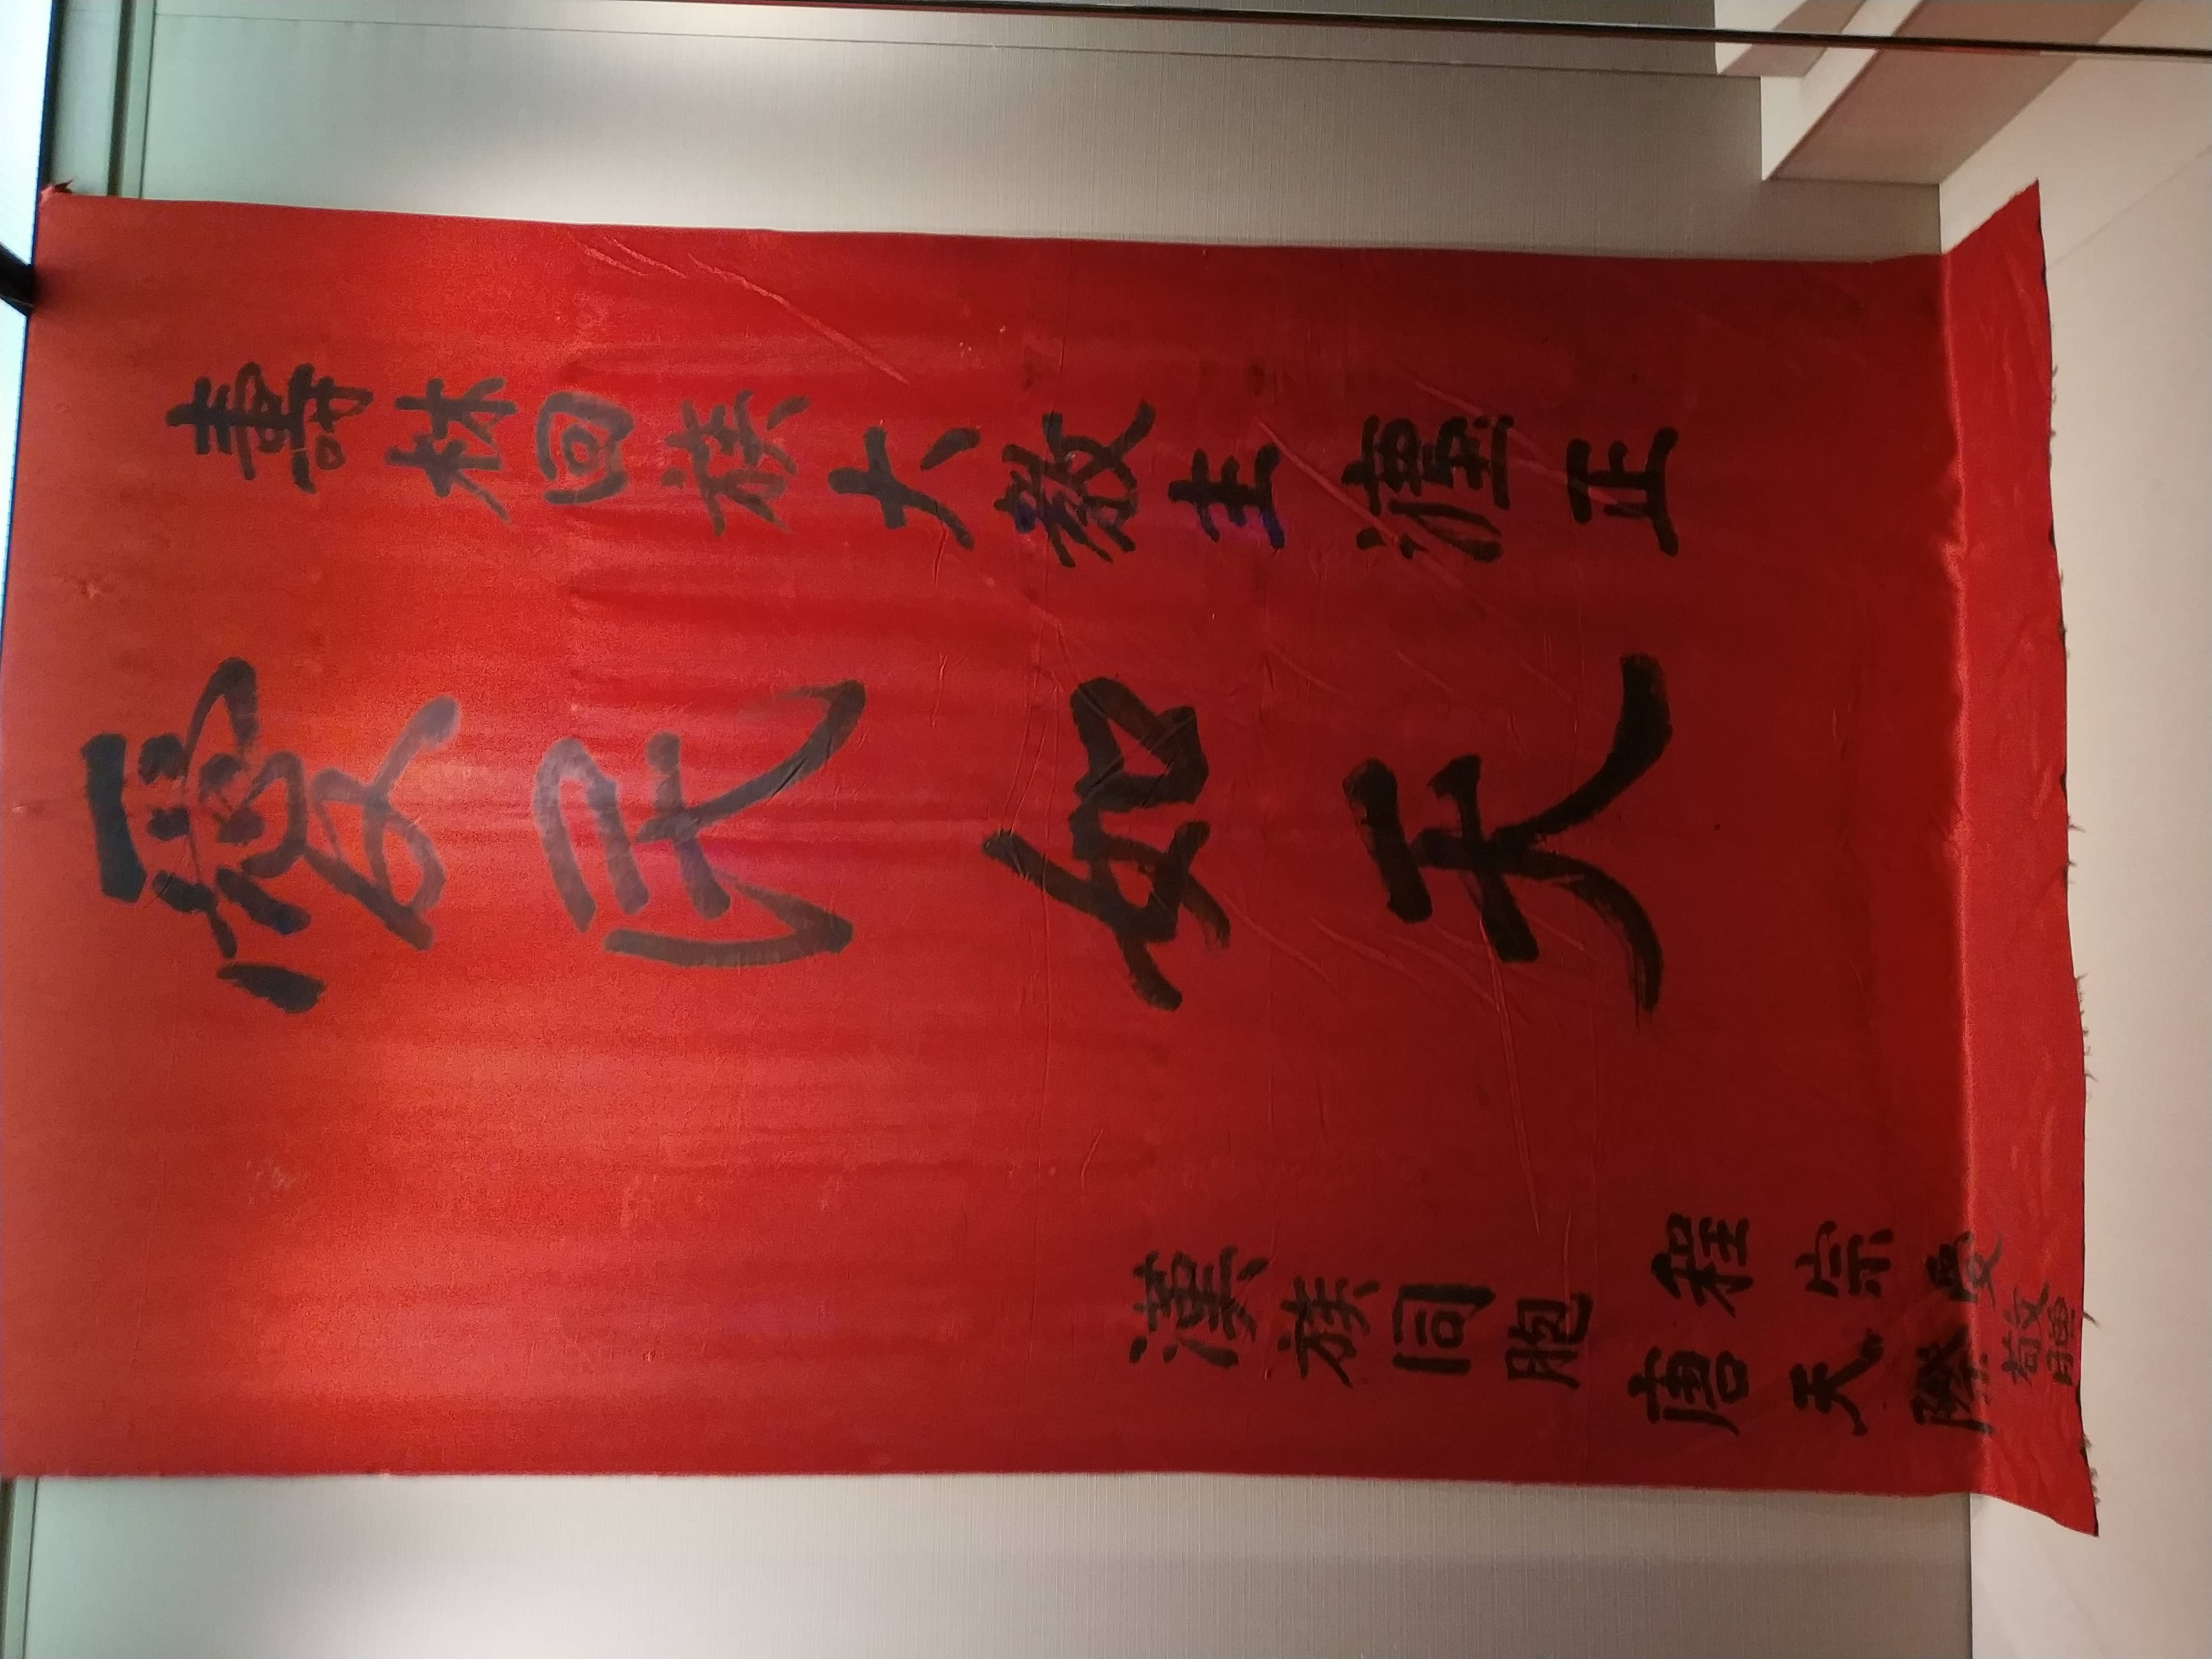 壽林回族大教主 瀍正
愛民如天
漢族同胞
程宗受
唐天際
敬贈